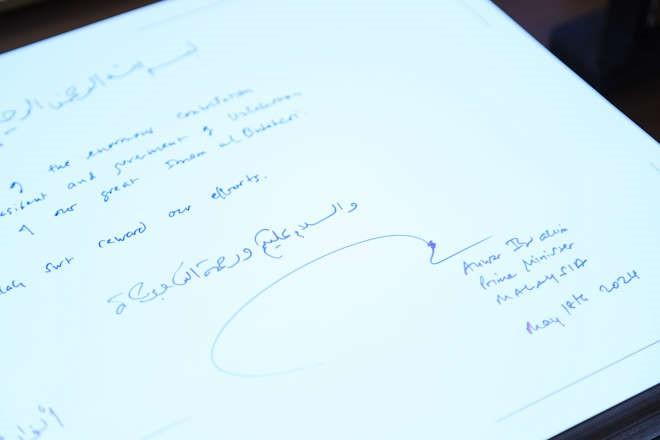 بسم الله الرحمن الرحيم
of the enormous contribution
and government of Uzbekistan
of our great Imam al Bukhari.
swt reward our efforts.
والسلام عليكم ورحمة الله وبركاته
Anwar Ibrahim
Prime Minister
MALAYSIA
May 18th 2024